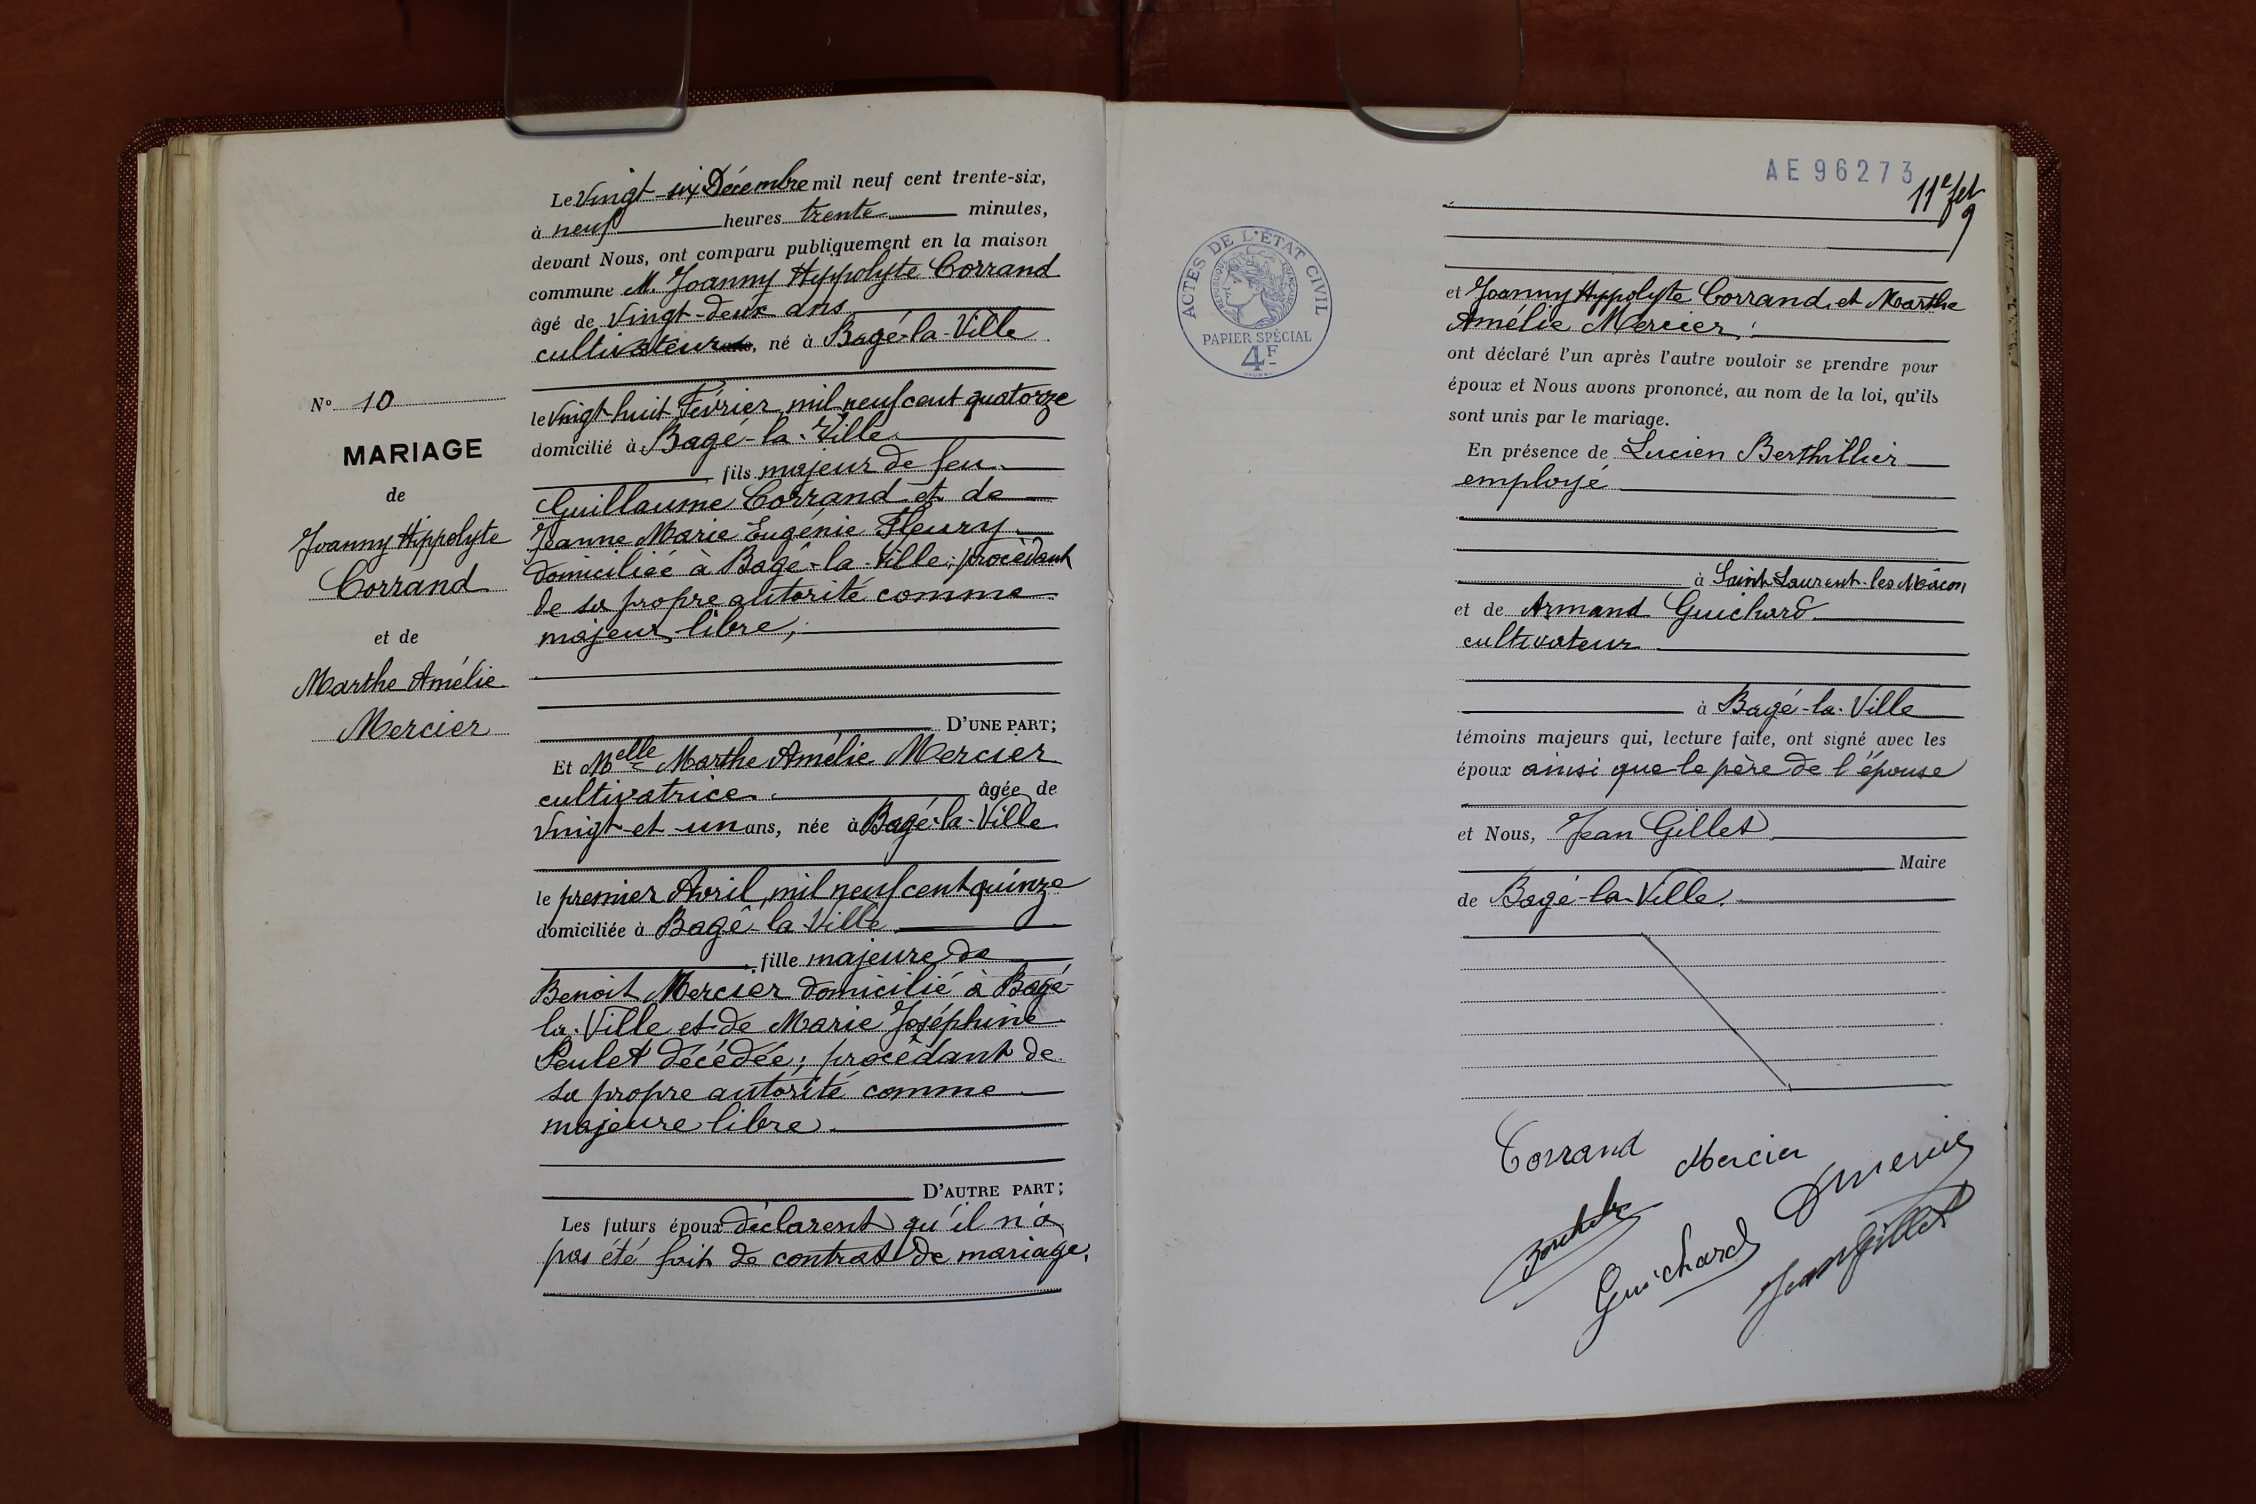 N° 10
MARIAGE
de
Joanny Hippolyte
Corrand
et de
Marthe Amélie
Mercier
Le vingt-six Décembre mil neuf cent trente-six,
à neuf heures trente minutes,
devant Nous, ont comparu publiquement en la maison
commune M. Joanny Hippolyte Corrand
âgé de vingt-deux ans
cultivateur, né à Bagé-la-Ville
le vingt-huit Février mil neuf cent quatorze
domicilié à Bagé-la-Ville
fils majeur de feu
Guillaume Corrand et de
Jeanne Marie Eugénie Fleury
domiciliée à Bagé-la-Ville; procédant
de sa propre autorité comme
majeur libre;
D'UNE PART;
Et Melle Marthe Amélie Mercier
cultivatrice âgée de
vingt-et-un ans, née à Bagé-la-Ville
le premier Avril mil neuf cent quinze
domiciliée à Bagé-la-Ville
fille majeure de
Benoit Mercier domicilié à Bagé-
la-Ville et de Marie Joséphine
Peulet décédée; procédant de
sa propre autorité comme
majeure libre.
D'AUTRE PART;
Les futurs époux déclarent qu'il n'a
pas été fait de contrat de mariage.
AE 96273
11e fet
9
ACTES DE L'ÉTAT CIVIL
RÉPUBLIQUE FRANÇAISE
PAPIER SPÉCIAL
4F
et Joanny Hippolyte Corrand et Marthe
Amélie Mercier;
ont déclaré l'un après l'autre vouloir se prendre pour
époux et Nous avons prononcé, au nom de la loi, qu'ils
sont unis par le mariage.
En présence de Lucien Berthillier
employé
à Saint-Laurent-les-Mâcon
et de Armand Guichard
cultivateur
à Bagé-la-Ville
témoins majeurs qui, lecture faite, ont signé avec les
époux ainsi que le père de l'épouse
et Nous, Jean Gillet
Maire
de Bagé-la-Ville.
Corrand Mercier
Guichard
Jean Gillet